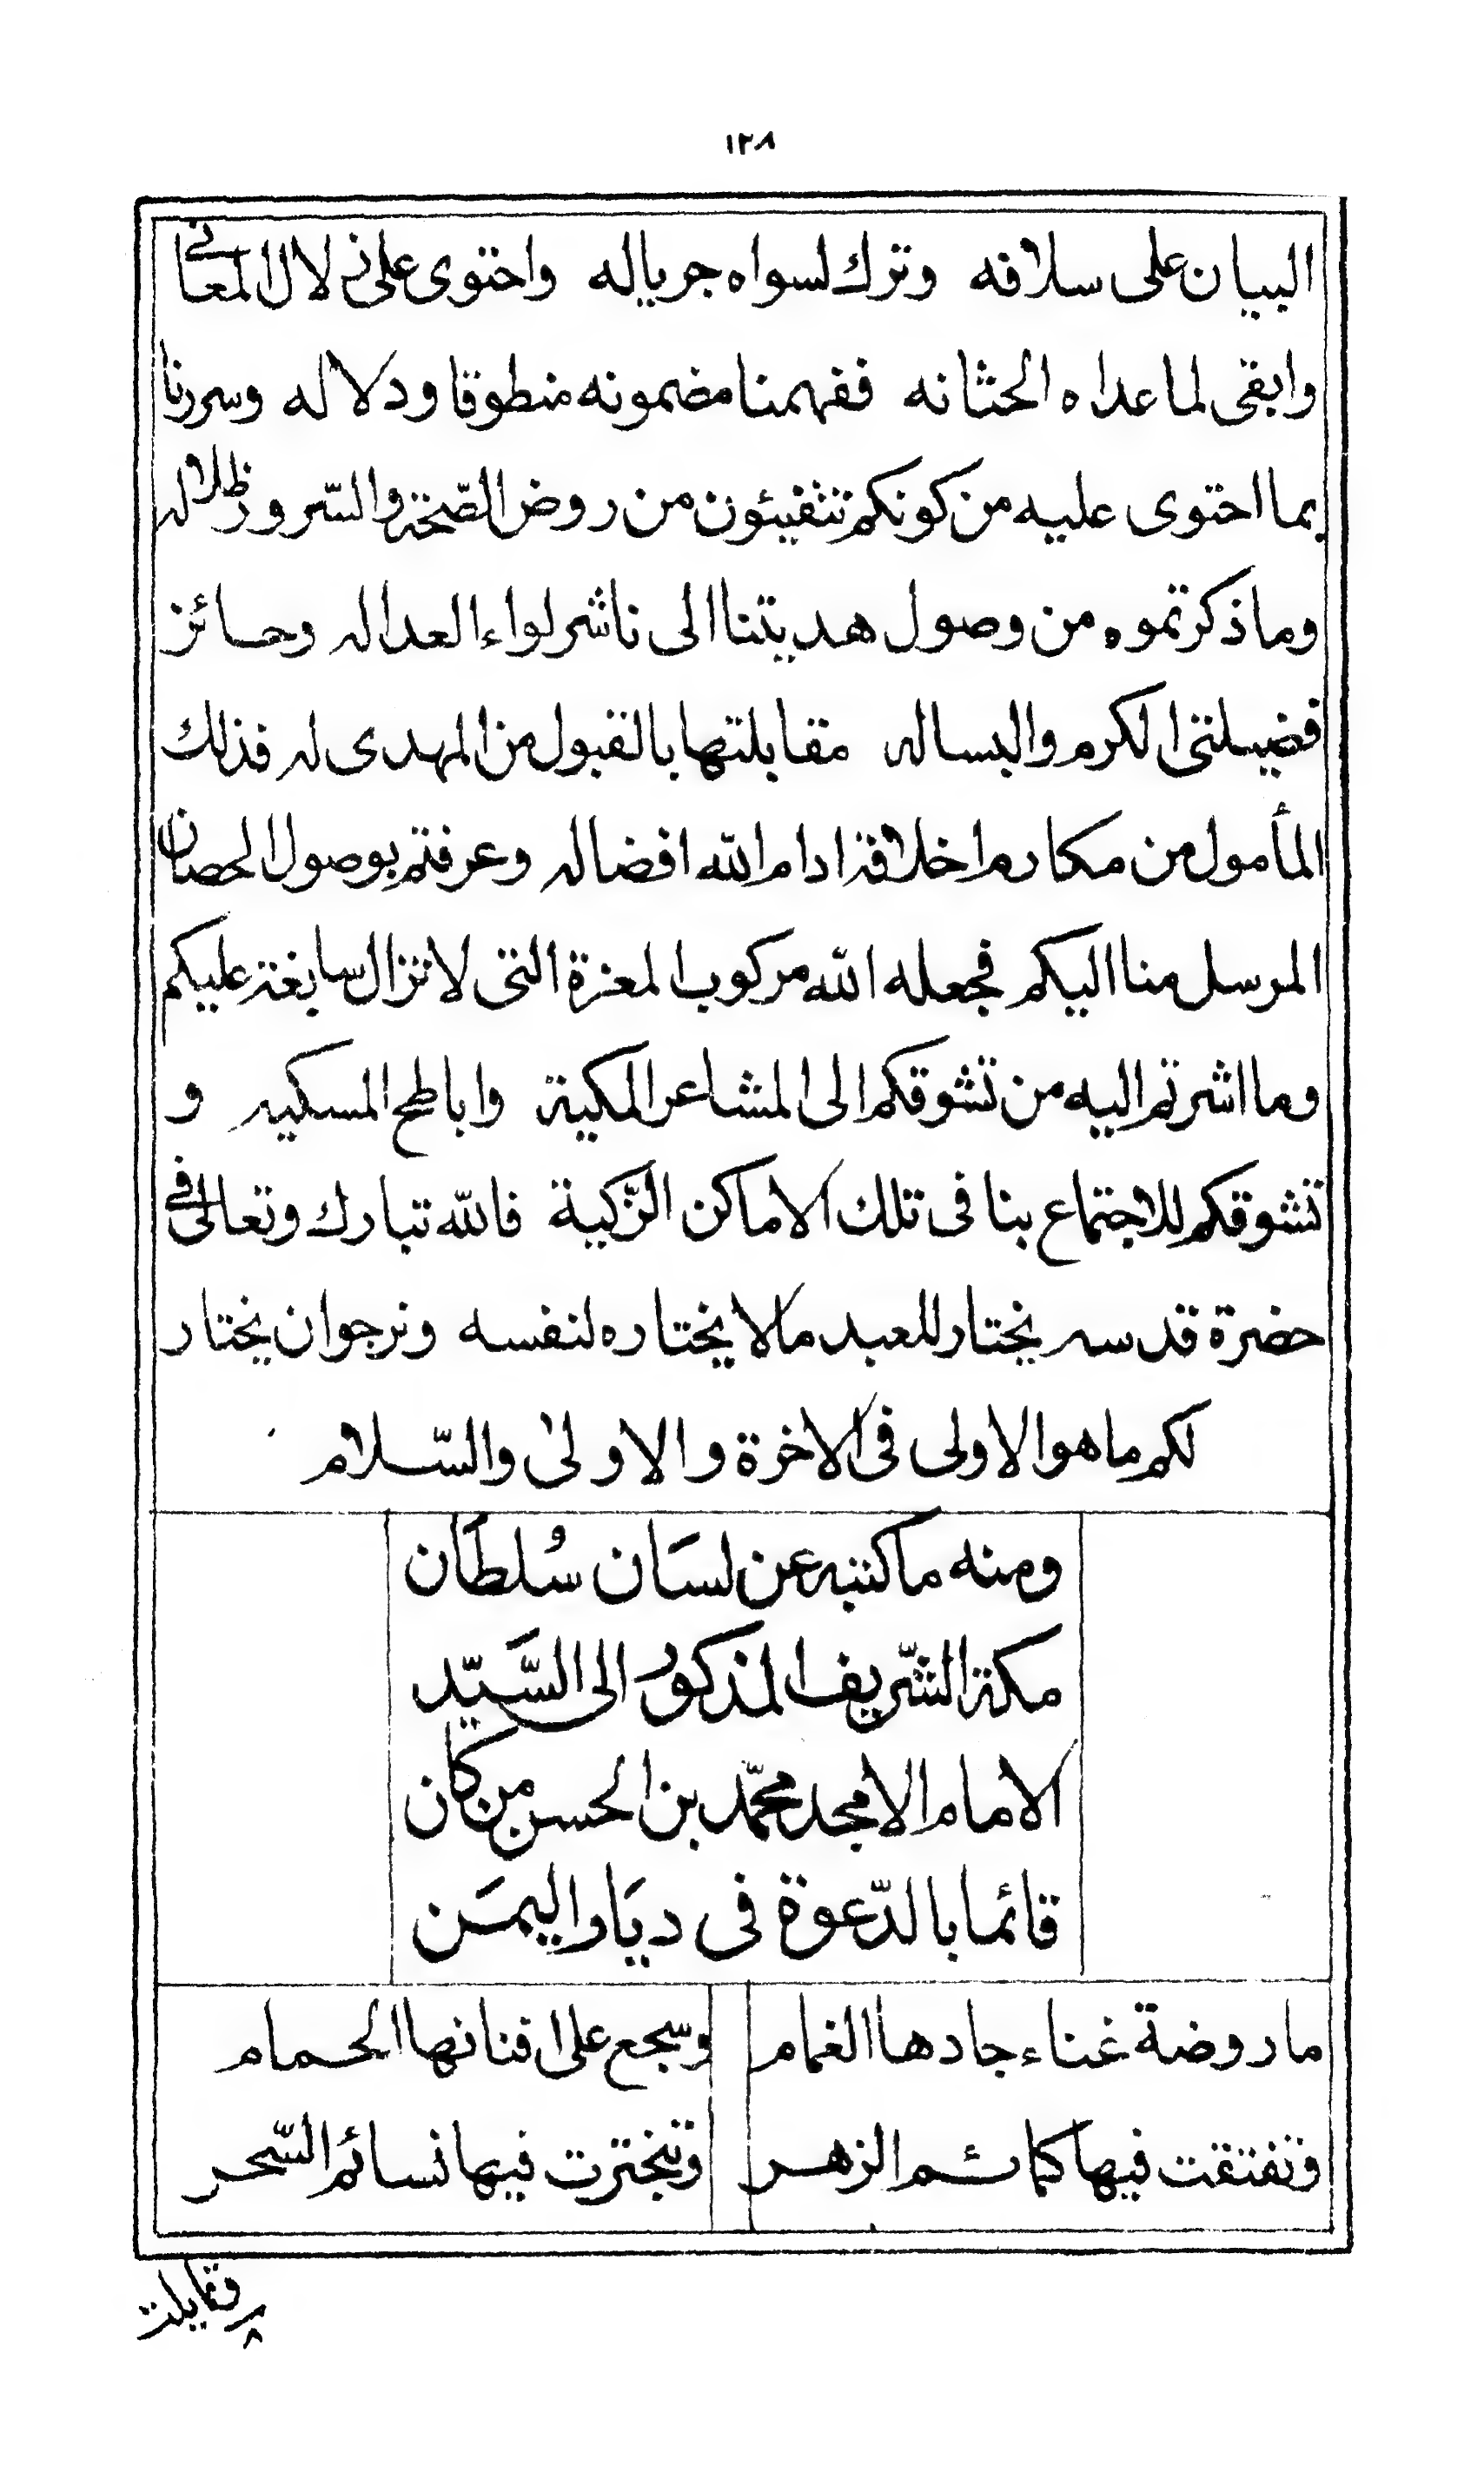 ١٢٨
البيان على سلافه وترك لسواه جرياله واحتوى على زلال المعانى
وابقى لما عداه الحثانه ففهمنا مضمونه منطوقا ودلاله وسررنا
بما احتوى عليه من كونكم تتفيئون من روض الصّحّة والسّرور ظلاله
وما ذكرتموه من وصول هديتنا الى ناشر لواء العداله وحائز
فضيلتى الكرم والبساله مقابلتها بالقبول من المهدى له فذلك
المأمول من مكارم اخلاقه ادام الله افضاله وعرفتم بوصول الحصان
المرسل منا اليكم فجعله الله مركوب المعزة التى لا تزال سابغة عليكم
وما اشرتم اليه من تشوقكم الى المشاعر المكية واباطح المسكيه و
تشوقكم للاجتماع بنا فى تلك الاماكن الزّكية فالله تبارك وتعالى فى
حضرة قدسه يختار للعبد ما لا يختاره لنفسه ونرجوان يختار
لكم ما هو الاولى فى الاخرة والاولى والسّلام
ومنه ما كتبه عن لسَان سُلطَان
مكة الشّريف المذكور الى السَّيّد
الامام الامجد محمّد بن الحسن من كان
قائما بالدّعوة فى ديَار اليمَن
ما روضة غناء جادها الغمام وسجع على افنانها الحمام
وتفتقت فيها كمائم الزهر وتبخترت فيها نسائم السّحر
وتمايلت
٨